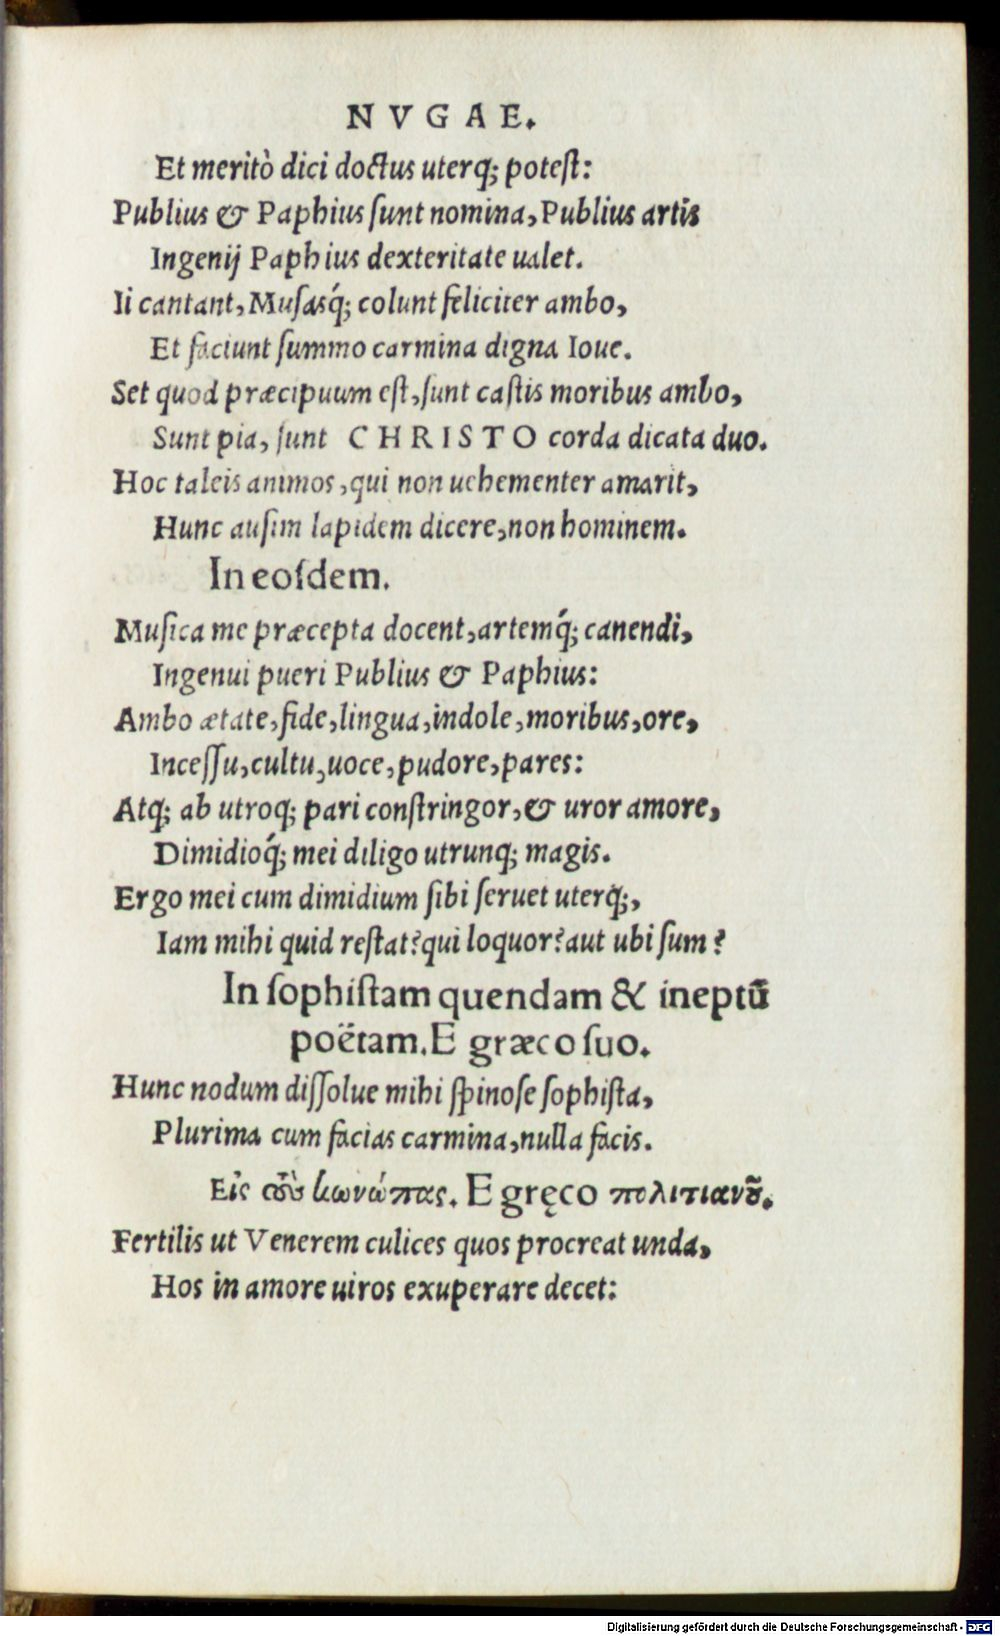 NVGAE.
Et meritò dici doctus uterq; potest:
Publius & Paphius sunt nomina, Publius artis
Ingenij Paphius dexteritate ualet.
Ii cantant, Musasq́; colunt feliciter ambo,
Et faciunt summo carmina digna Ioue.
Set quod præcipuum est, sunt castis moribus ambo,
Sunt pia, sunt CHRISTO corda dicata duo.
Hoc taleis animos, qui non uehementer amarit,
Hunc ausim lapidem dicere, non hominem.
In eosdem.
Musica me præcepta docent, artemq́; canendi,
Ingenui pueri Publius & Paphius:
Ambo ætate, fide, lingua, indole, moribus, ore,
Incessu, cultu, uoce, pudore, pares:
Atq; ab utroq; pari constringor, & uror amore,
Dimidioq́; mei diligo utrunq; magis.
Ergo mei cum dimidium sibi seruet uterq;,
Iam mihi quid restat? qui loquor? aut ubi sum?
In sophistam quendam & ineptū
poëtam. E græco suo.
Hunc nodum dissolue mihi spinose sophista,
Plurima cum facias carmina, nulla facis.
Εἰς τοὺς κωνώπας. E gręco πολιτιανοῦ.
Fertilis ut Venerem culices quos procreat unda,
Hos in amore uiros exuperare decet:
Digitalisierung gefördert durch die Deutsche Forschungsgemeinschaft - DFG